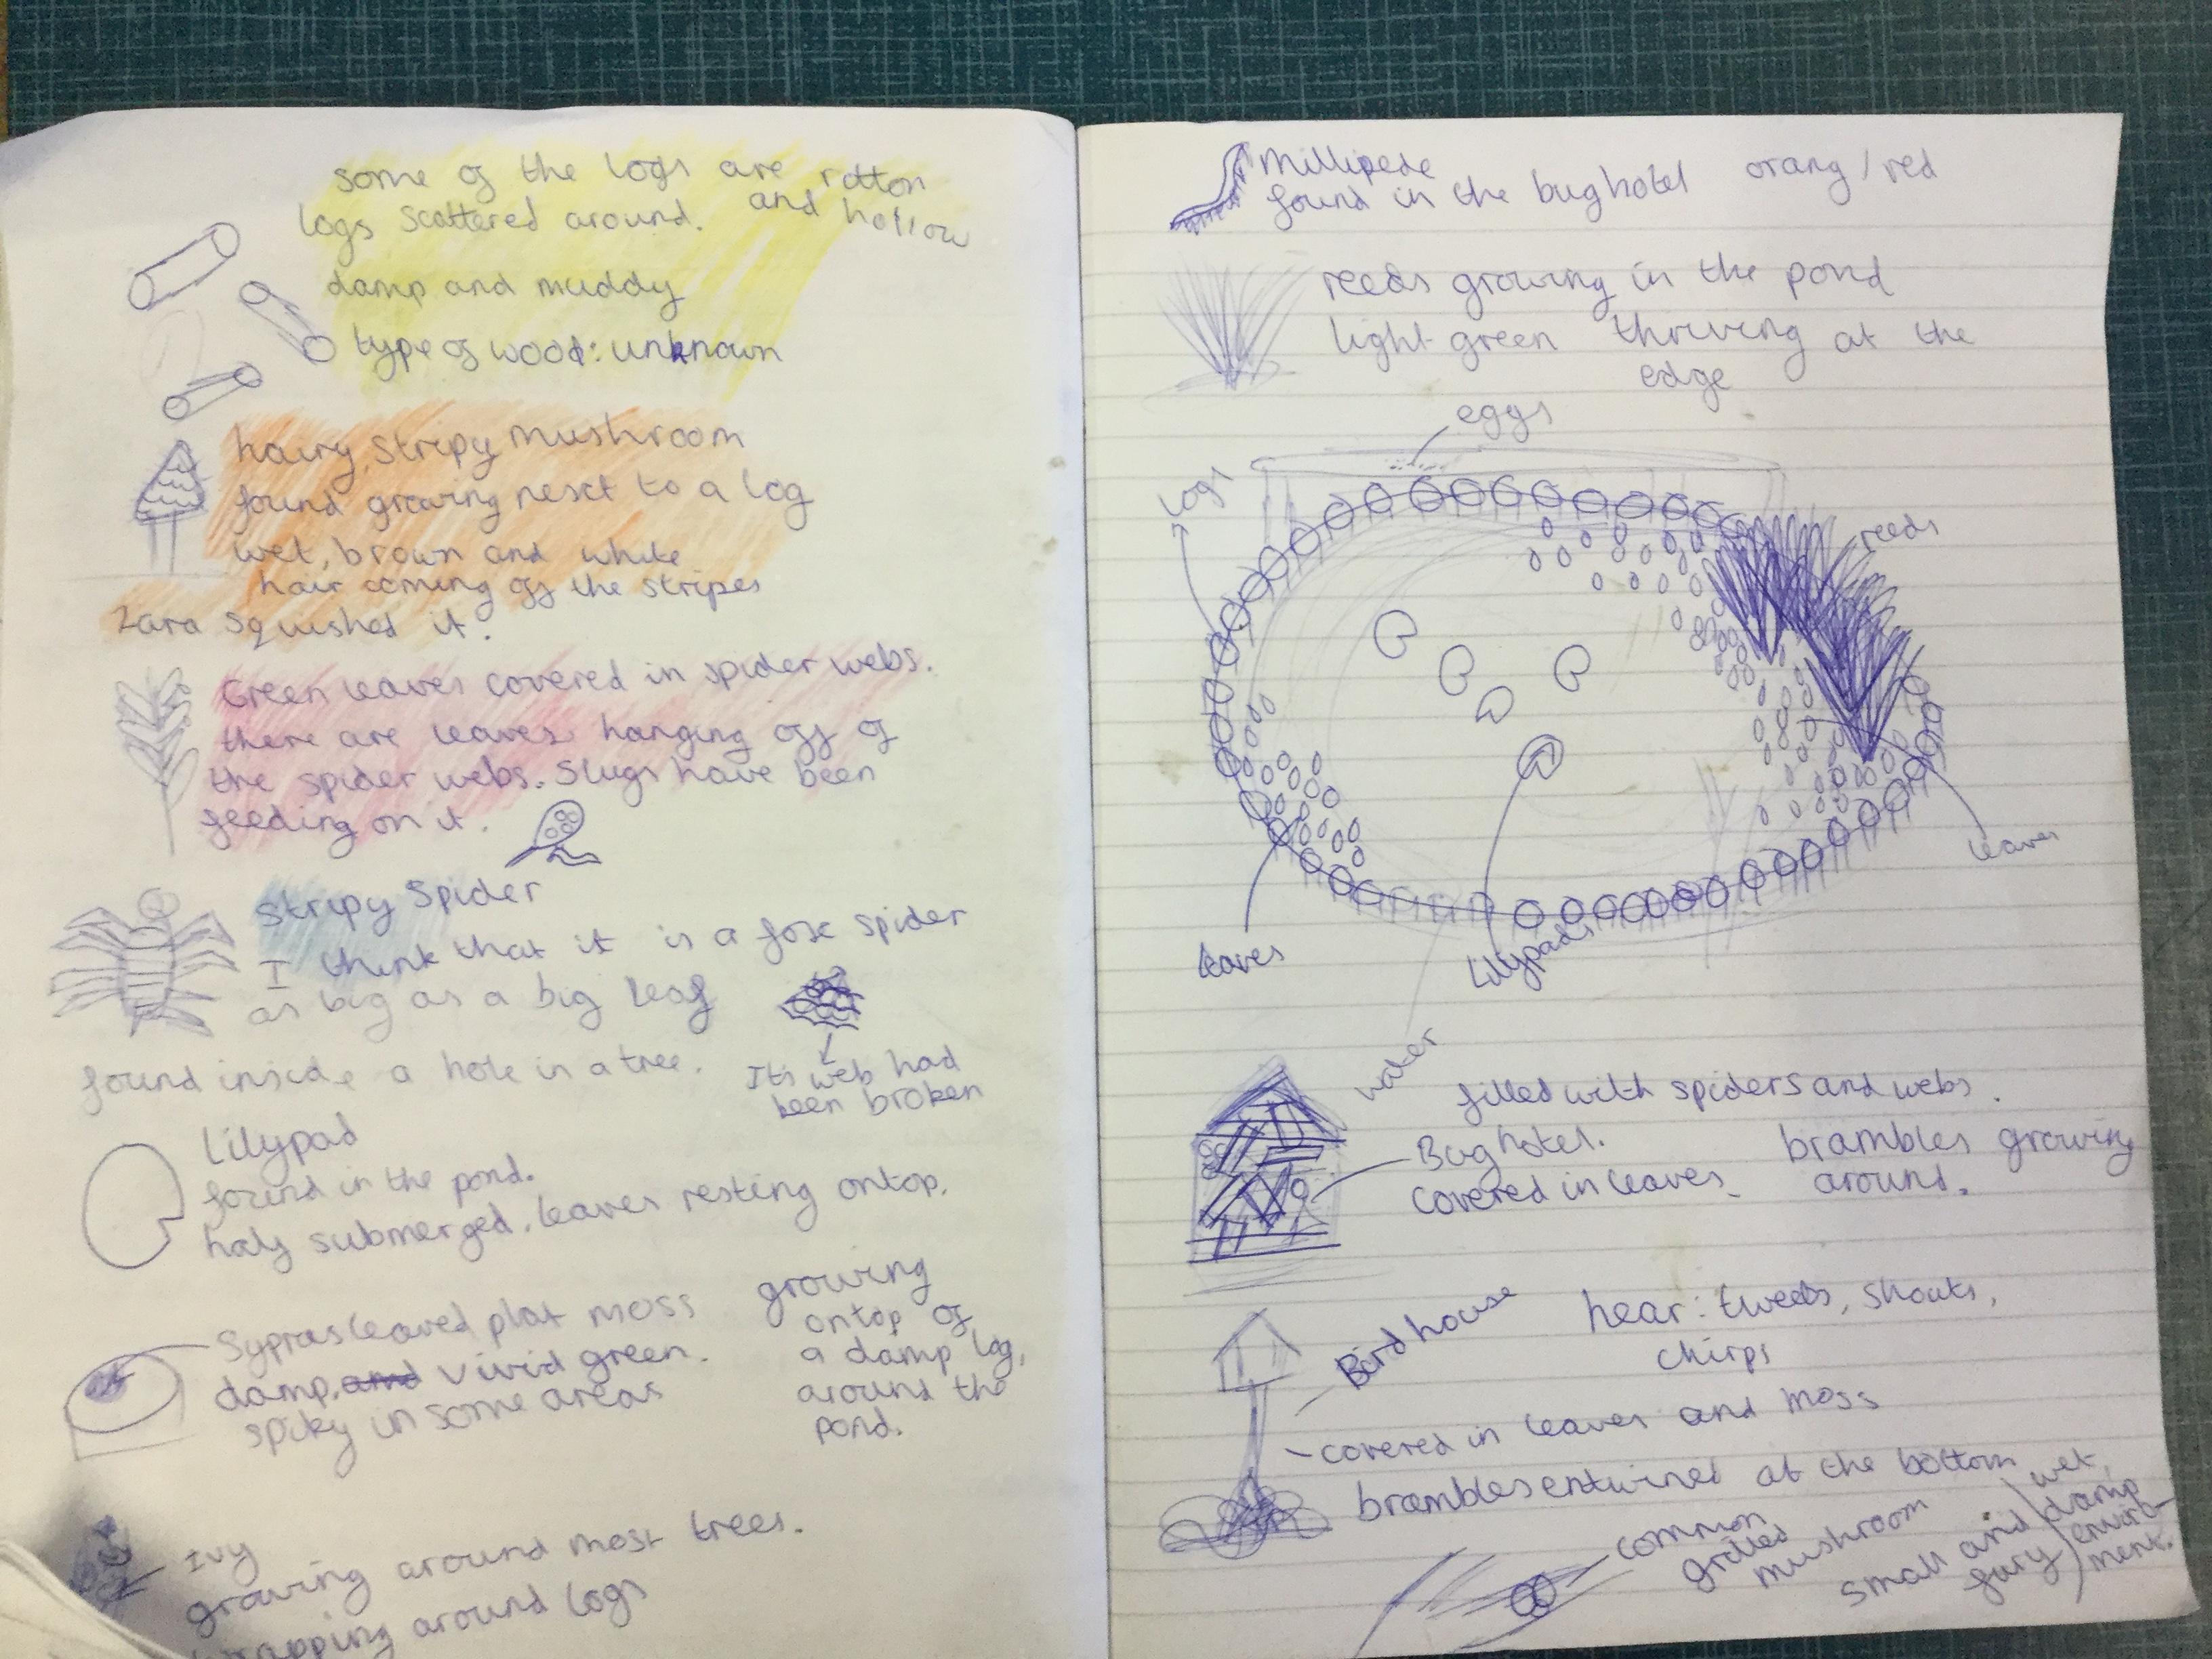 some of the logs are rotton
and hollow
logs scattered around.
damp and muddy
type of wood: unknown
hairy, stripy mushroom
found growing nesct to a log
wet, brown and white
hair coming off the stripes
Zara squished it.
Green leaves covered in spider webs.
there are leaves hanging off of
the spider webs. Slugs have been
feeding on it.
Stripy Spider
I think that it is a fox spider
as big as a big leaf
found inside a hole in a tree.
It's web had
been broken
Lilypad
found in the pond.
half submerged. leaves resting ontop.
Sypras leaved plat moss
damp, and vivid green.
spiky in some areas
growing
ontop of
a damp log,
around the
pond.
Ivy
growing around most trees.
wrapping around logs
Millipede
found in the bug hotel orang/red
reeds growing in the pond
light green thriving at the
edge
eggs
logs
reeds
leaves
leaves
Lilypads
water
filled with spiders and webs.
Bug hotel.
Covered in leaves.
brambles growing
around.
Bird house
hear: tweets, shouts,
chirps
covered in leaves and moss
brambles entwined at the bottom
common
grilled
mushroom
small and
fury
wet,
damp
enviro-
ment.